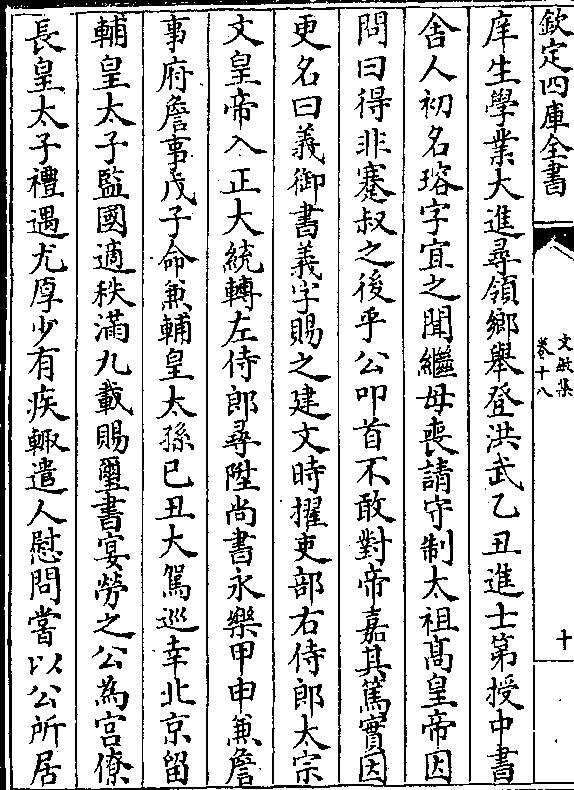 欽定四庫全書
文敏集
卷十八
十
庠生學業大進尋領鄉舉登洪武乙丑進士第授中書
舍人初名瑢字宜之聞繼母喪請守制太祖髙皇帝因
問曰得非蹇叔之後乎公叩首不敢對帝嘉其篤實因
更名曰義御書義字賜之建文時擢吏部右侍郎太宗
文皇帝入正大統轉左侍郎尋陞尚書永樂甲申兼詹
事府詹事戊子命兼輔皇太孫己丑大駕巡幸北京留
輔皇太子監國適秩滿九載賜璽書宴勞之公為宫僚
長皇太子禮遇尤厚少有疾輙遣人慰問嘗以公所居